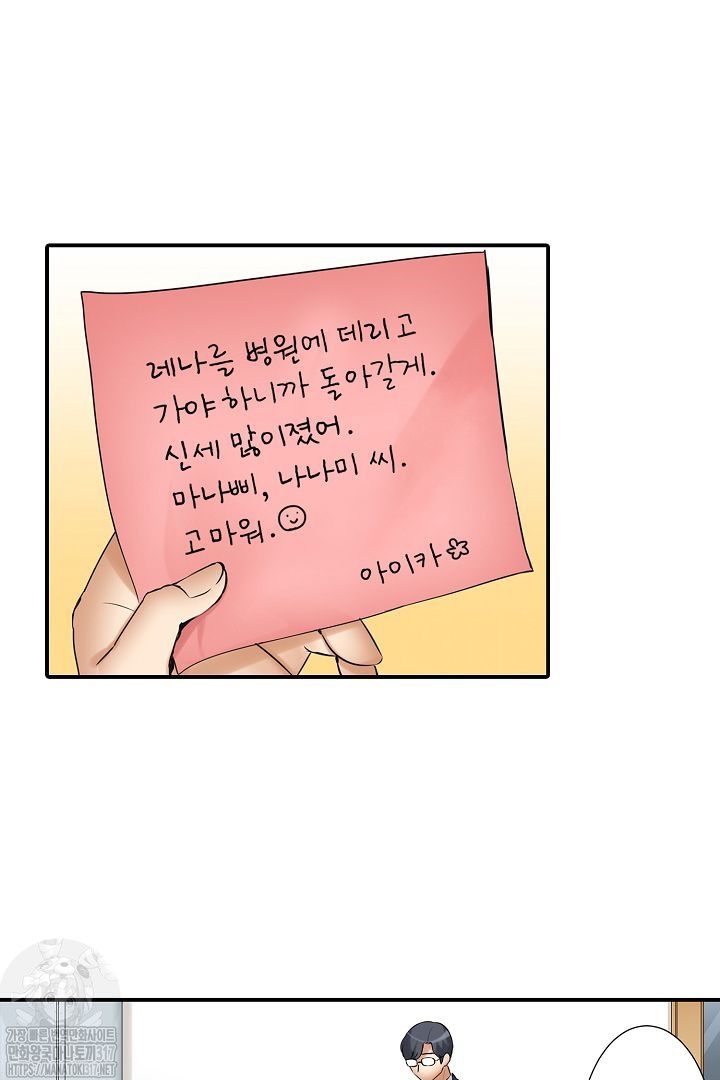 레나를 병원에 데리고
가야하니까 돌아갈게.
신세 많이졌어.
마나삐, 나나미 씨.
고마워.
아이카
가장 빠른 번역만화사이트
만화왕국마나토끼317
HTTPS://MANATOKI317.NET